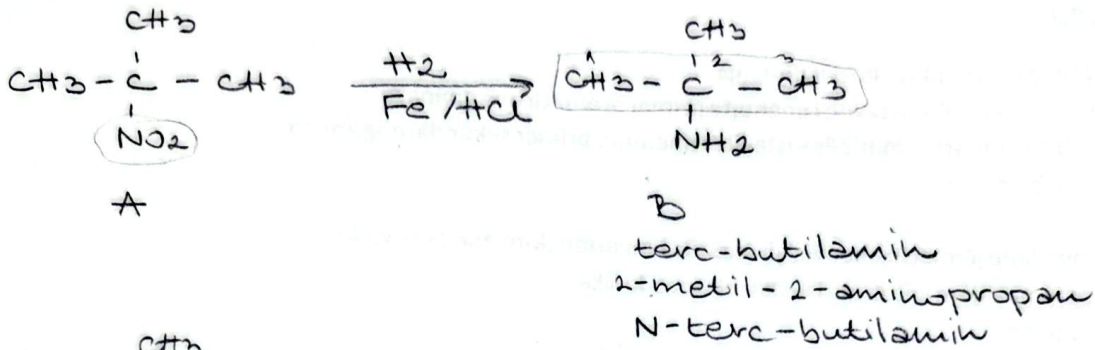 CH3
CH3 - C - CH3
NO2
A
H2
Fe/HCl
CH3
1 2 3
CH3 - C - CH3
NH2
B
terc-butilamin
2-metil-2-aminopropan
N-terc-butilamin
CH3